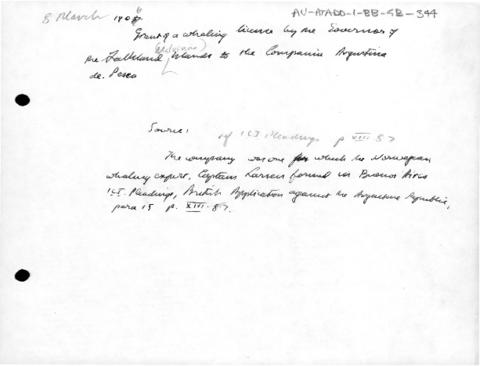 8 March 1906
AU-ATADD-1-BB-SB-344
Grant of a whaling licence by the Governor of
the Falkland Islands to the Compania Argentina
de. Pesca
Source:
cf ICJ Pleadings p XIII.87
The company was one for which the Norwegian
whaling expert, Captain Larsen formed in Buenos Aires
ICJ Pleadings, British Application against the Argentine Republic,
para 15 p. XIII.87.